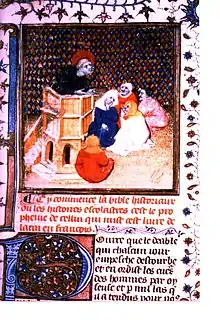 Cy commence la bible historiaus
ou les histoires escolastres cest le pro
heme de cellui qui mist cest livre de
latin en francois.
Pour ce que le deable
qui chascun iour
empesche destourbe
et en ordist les cuers
des hommes par oy
seuse et p mil las q
il a tendus pour nos